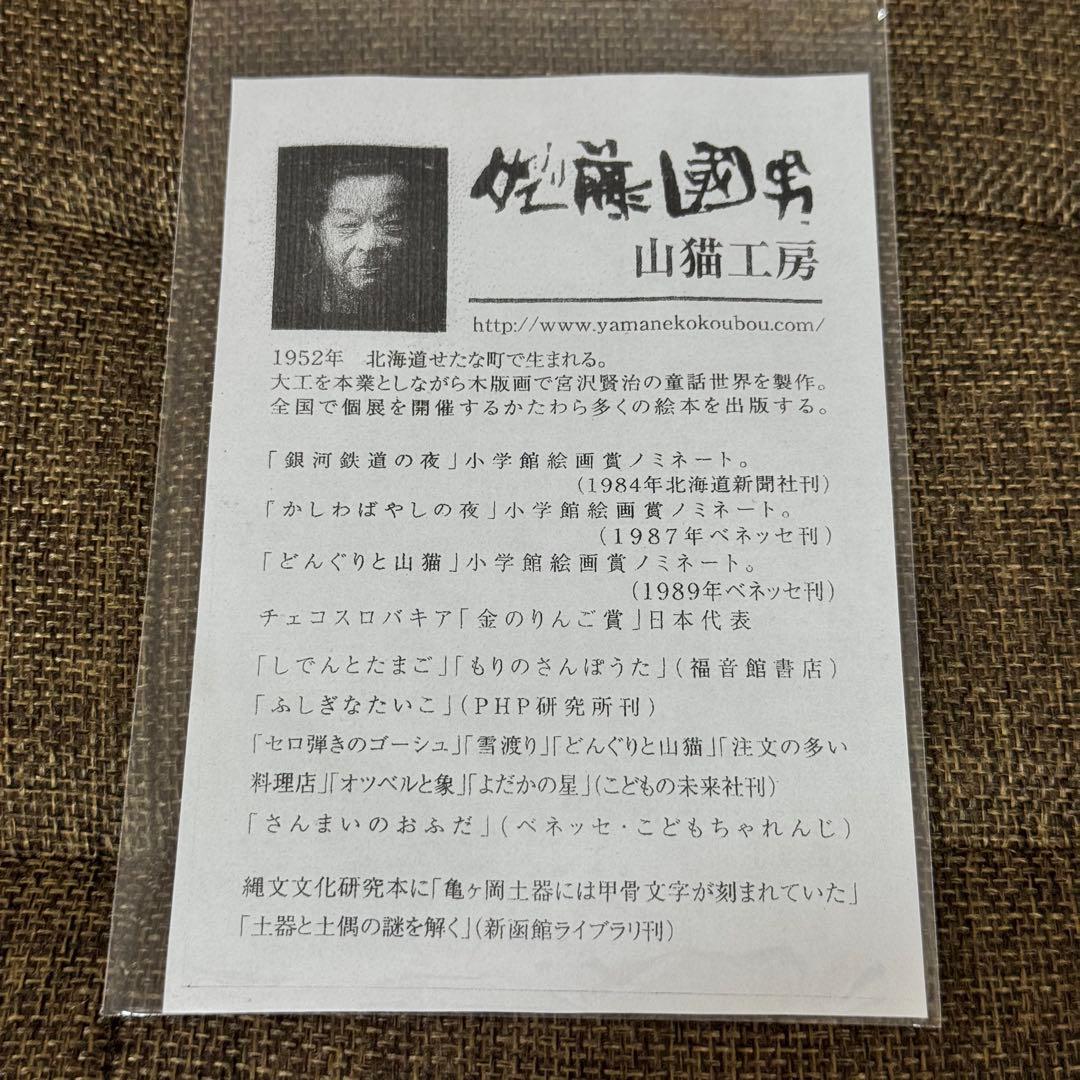 佐藤國男
山猫工房
http://www.yamanekokoubou.com/
1952年　北海道せたな町で生まれる。
大工を本業としながら木版画で宮沢賢治の童話世界を製作。
全国で個展を開催するかたわら多くの絵本を出版する。
「銀河鉄道の夜」小学館絵画賞ノミネート。
(1984年北海道新聞社刊)
「かしわばやしの夜」小学館絵画賞ノミネート。
(1987年ベネッセ刊)
「どんぐりと山猫」小学館絵画賞ノミネート。
(1989年ベネッセ刊)
チェコスロバキア「金のりんご賞」日本代表
「しでんとたまご」「もりのさんぽうた」(福音館書店)
「ふしぎなたいこ」(PHP研究所刊)
「セロ弾きのゴーシュ」「雪渡り」「どんぐりと山猫」「注文の多い
料理店」「オツベルと象」「よだかの星」(こどもの未来社刊)
「さんまいのおふだ」(ベネッセ・こどもちゃれんじ)
縄文文化研究本に「亀ヶ岡土器には甲骨文字が刻まれていた」
「土器と土偶の謎を解く」(新函館ライブラリ刊)